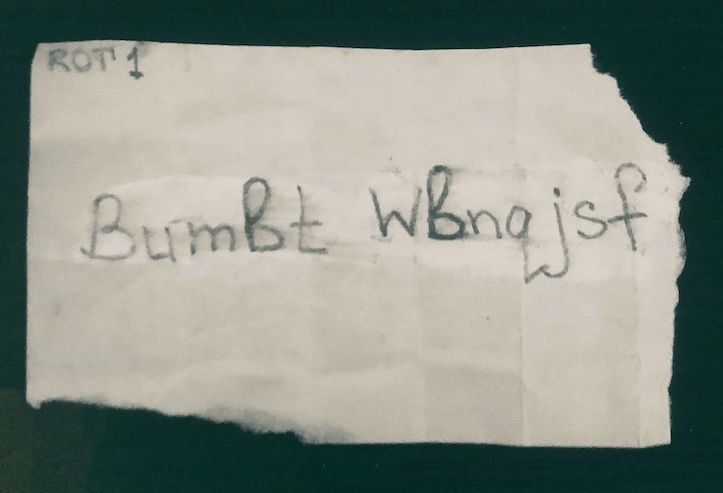 ROT 1
BumBt WBnqjsf